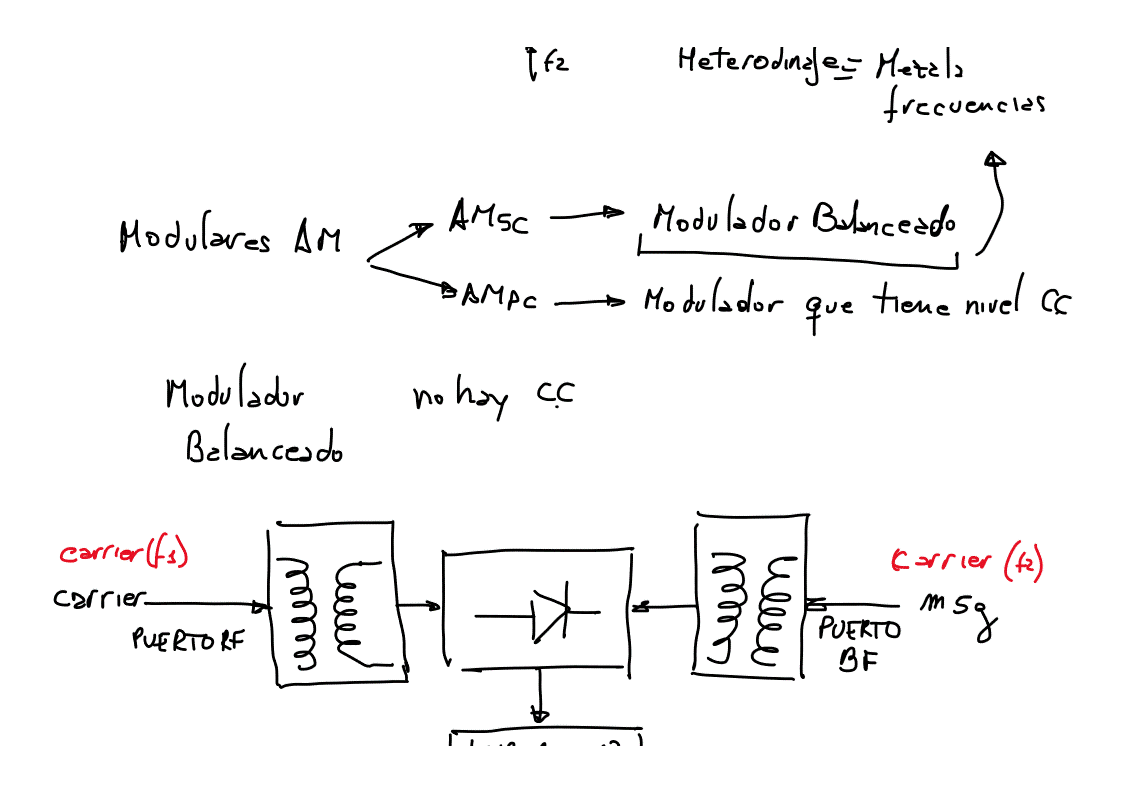 f2
Heterodinaje = Mezcla
frecuencias
Modulares AM
AMSC
Modulador Balanceado
AMPC
Modulador que tiene nivel CC
Modulador
Balanceado
no hay CC
carrier (f1)
carrier
PUERTO RF
Carrier (f2)
msg
PUERTO
BF